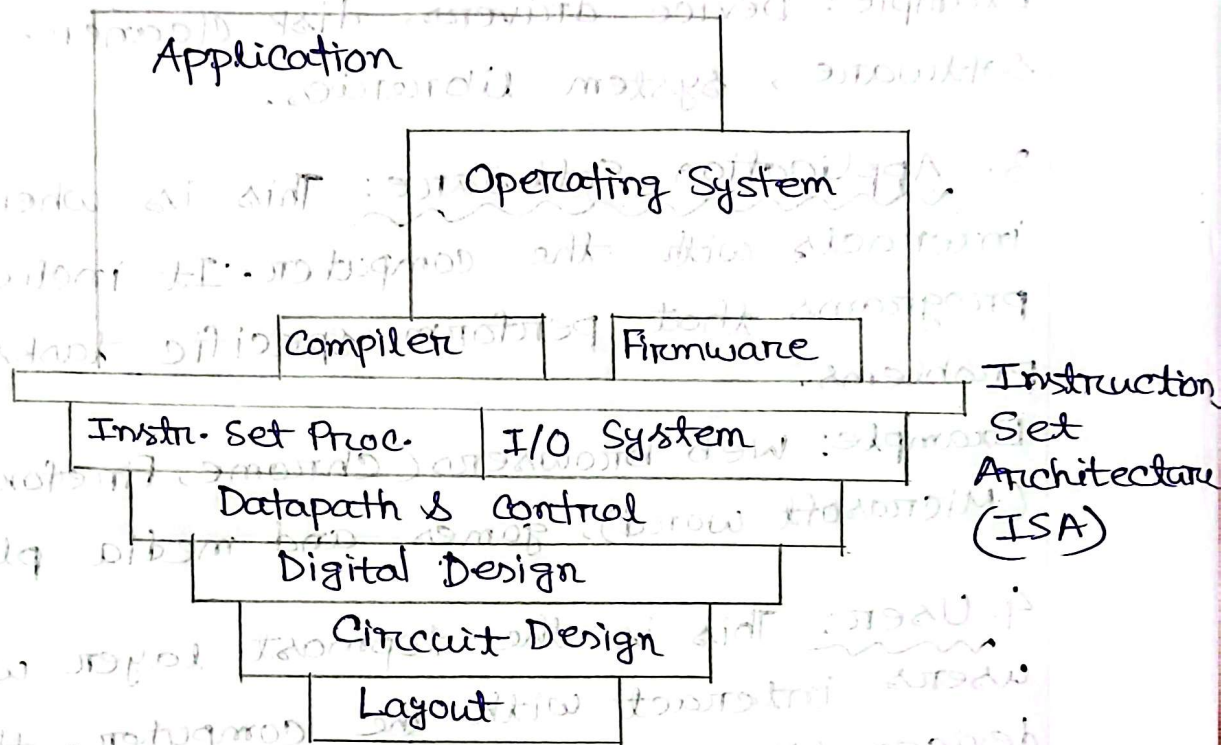 Application
Operating System
Compiler
Firmware
Instruction
Set
Architecture
(ISA)
Instr. Set Proc.
I/O System
Datapath & control
Digital Design
Circuit Design
Layout